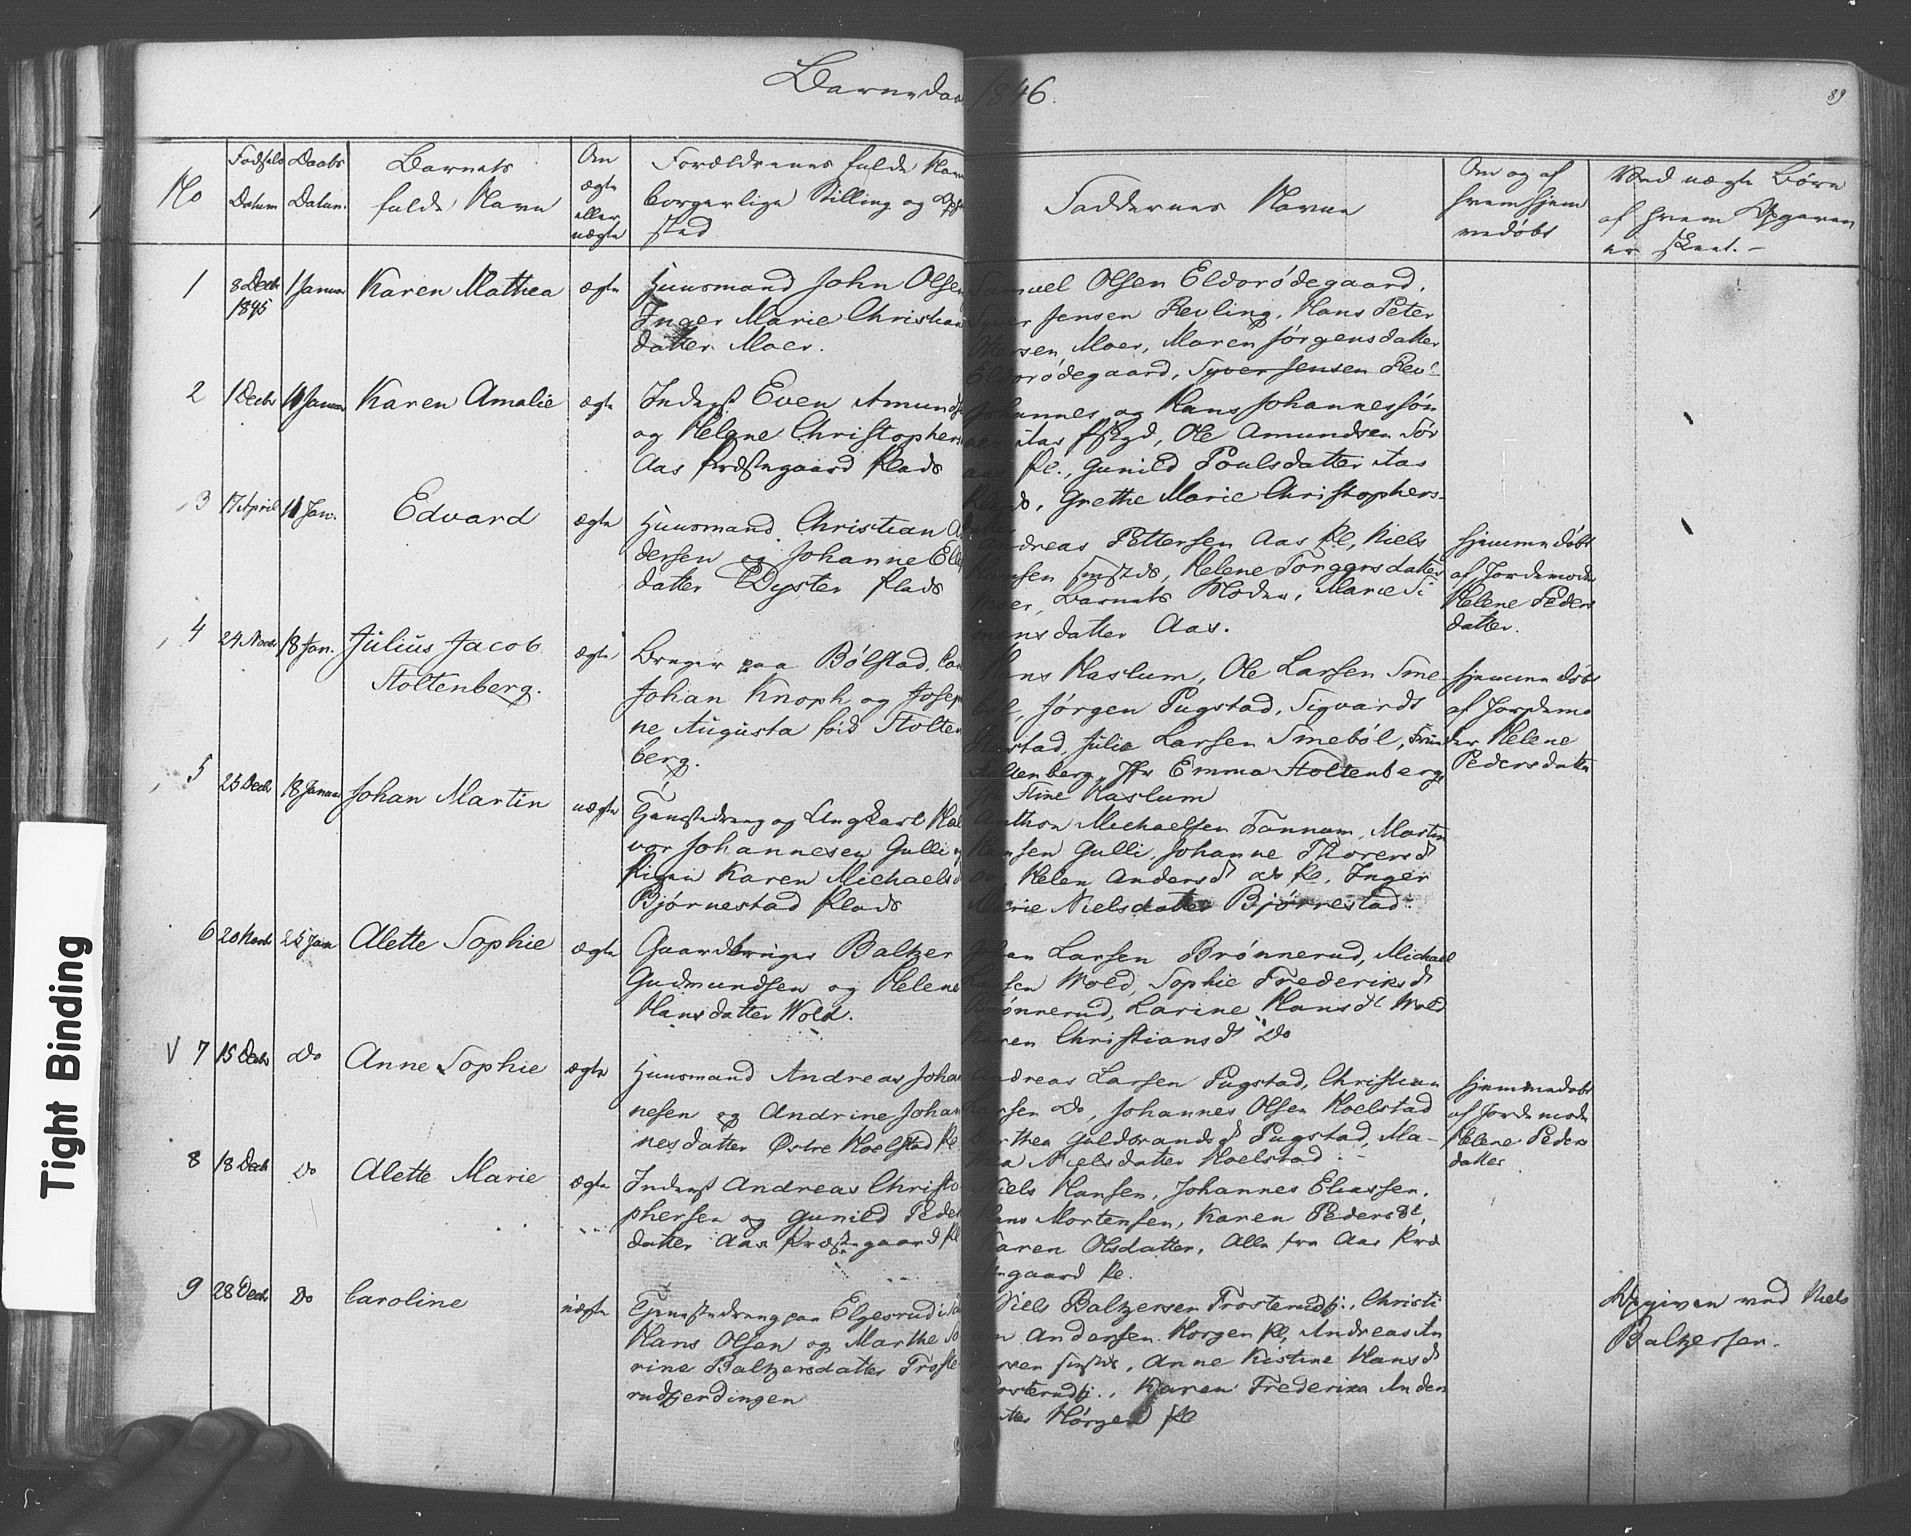 Barnedaab 1846.
89
No
Fødsels
Datum
Daabs
Datum.
Barnets
fulde Navn
Om
ægte
eller
uægte
Forældrenes fulde Navn
borgerlige Stilling og Opholds
sted
Faddernes Navne
Om og af
hvem hjem
medøbt
Ved uægte Børn
af hvem Opgaven
er skeet. –
1
8 Decb
1845
1 Januar
Karen Mathea
ægte
Huusmand John Olsen
Inger Marie Christians
datter Moer.
Samuel Olsen Eldorødegaard.
Syver Jensen Revling, Hans Peter
Moer, Maren Jørgensdatter
Eldorødegaard, Syver Jensen Rev
2
1 Decbr
11 Januar
Karen Amalie
ægte
Inderst Even Amunds
og Helene Christophers
Aas Præstegaard Plads
Johannes og Hans Johannessøn
Aas Ole Amundsen Sør
aas Pl., Gunild Poulsdatter Aas
Plads, Grethe Marie Christophers-
3
17 April
11 Jan.
Edvard
ægte
Huusmand Christian An
dersen og Johanne Ele
datter Dyster Plads
Andreas Pettersen Aas Pl, Niels
Hansen Helene Torgersdatter
Moer, Barnets Moder, Marie Si
mensdatter Aas.
hjemmedøbt
af Jordemoder
Helene Peders
datter.
4
24 Novbr
18 Jan.
Julius Jacob
Stoltenberg.
ægte
Bruger paa Bølstad, Carl
Johan Knoph og Josephi
ne Augusta fød Stolten
berg.
Hans Haslum, Ole Larsen Sme-
bøl, Jørgen Pugstad, Sigvardt
Julia Larsen Smebøl, Fru
Stoltenberg, Jfr Emma Stoltenberg,
Stine Haslum
hjemmedøbt
af Jordemo
der Helene
Pedersdatter
5
25 Decbr
18 Januar
Johan Martin
uægte
Tjenestedreng og Ungkarl Hal
vor Johannesen Gulli og
Pigen Karen Michaelsd
Bjørnestad Plads
Anthon Michaelsen Tannum, Martin
Hansen Gulli, Johanne Thorersdt
Helen Andersdt do Pl, Inger
Marie Nielsdatter Bjørnestad
6
20 Novbr
25 Jan
Alette Sophie
ægte
Gaardbruger Baltzer
Gudmundsen og Helene
Hansdatter Wold.
Johan Larsen Brønnerud, Michael
Larsen Wold, Sophie Frederiksdt
Brønnerud, Larine Hansdt Wold
Karen Christiansdt Do
V 7
15 Decbr
Do
Anne Sophie
ægte
Huusmand Andreas Johan
nesen og Andrine Johan
nesdatter Østre Hoelstad Pl
Andreas Larsen Pugstad, Christian
Larsen do, Johannes Olsen Hoelstad
Dorthea Guldbrandsdt Pugstad, Ma-
ria Nielsdatter Hoelstad
hjemmedøbt
af Jordemoder
Helene Peders
datter
8
18 Decb
Do
Alette Marie
ægte
Inderst Andreas Christo-
phersen og Gunild Peders
datter Aas Præstegaard Pl
Niels Hansen, Johannes Eliassen,
Hans Mortensen, Karen Pedersdt,
Karen Olsdatter, Alle fra Aas Præ
stegaard Pl.
9
28 Decbr
Do
Caroline
uægte
Tjenestedreng paa Elgesrud
Hans Olsen og Marthe So
rine Baltzersdatter Froste
rudfjerdingen
Niels Baltzersen Frosterudfj., Christi
an Andersen Horgen Pl, Andreas An
dersen Anne Kistine Hansdt
Frosterudfj., Karen Frederika Anders
datter Horgen Pl
Opgiven ved Niels
Baltzersen.
Tight Binding